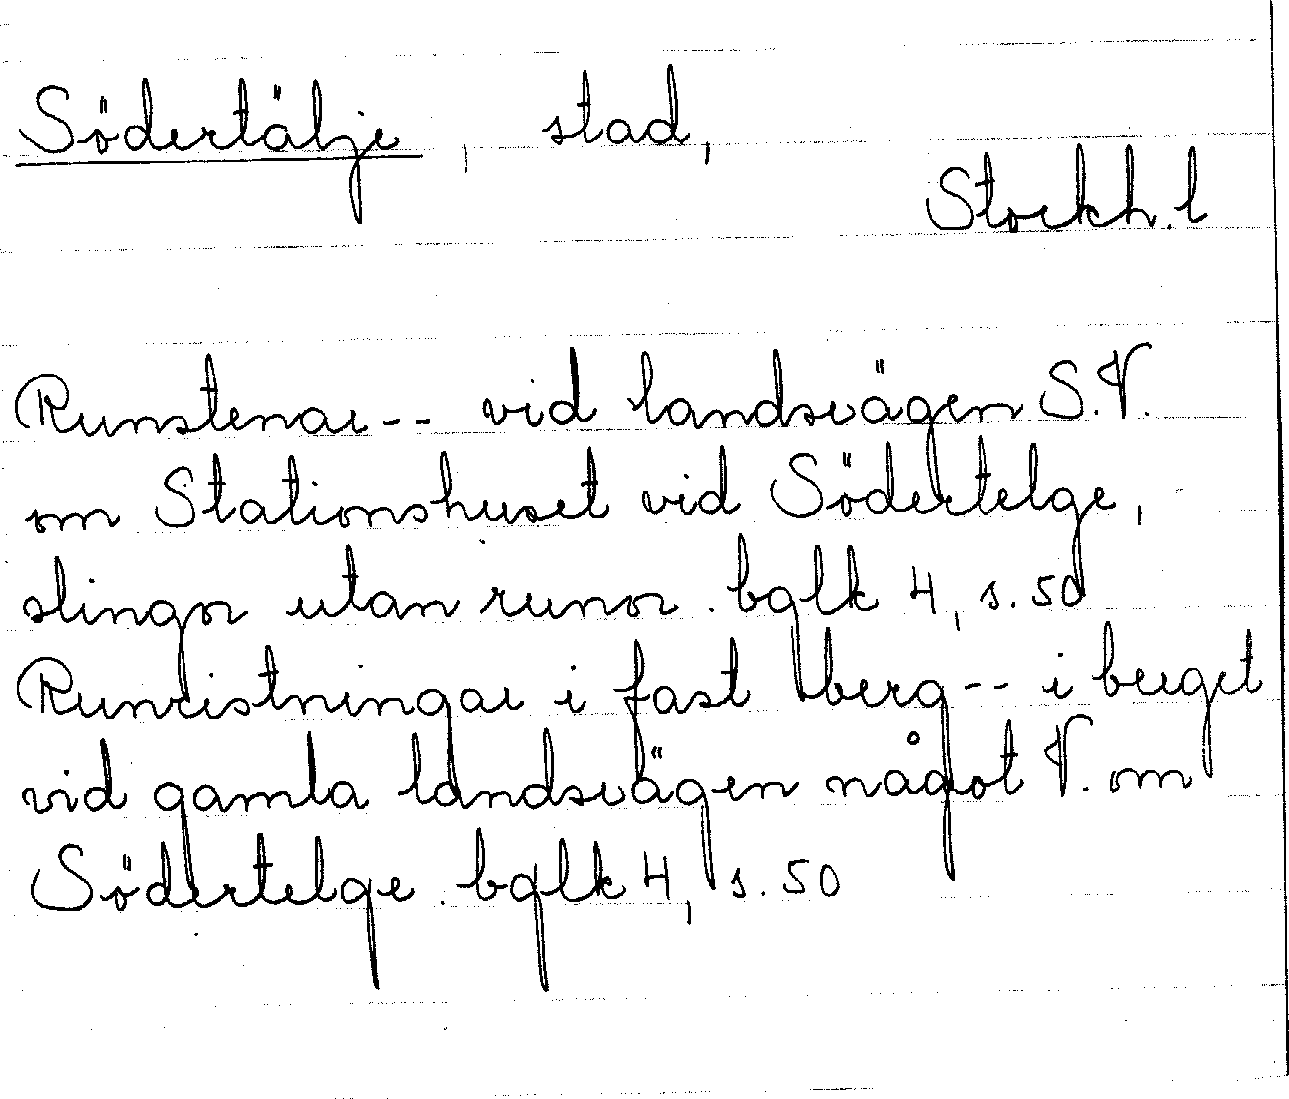 Södertälje, stad,
Stockh. l
Runstenar -- vid landsvägen S.V.
om Stationshuset vid Södertelge,
slingor utan runor. bglk 4, s. 50
Runristningar i fast berg -- i berget
vid gamla landsvägen något V. om
Södertelge. bglk 4, s. 50